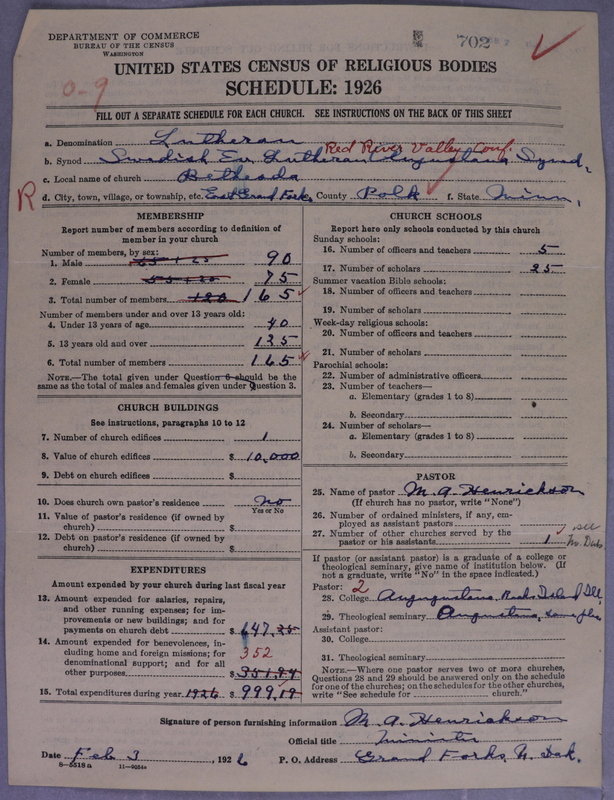 DEPARTMENT OF COMMERCE
BUREAU OF THE CENSUS
WASHINGTON
702
UNITED STATES CENSUS OF RELIGIOUS BODIES
SCHEDULE: 1926
0-9
FILL OUT A SEPARATE SCHEDULE FOR EACH CHURCH. SEE INSTRUCTIONS ON THE BACK OF THIS SHEET
a. Denomination Lutheran
Red River Valley Conf.
b. Synod Swedish Ev. Lutheran Augustana Synod,
c. Local name of church Bethesda
R
d. City, town, village, or township, etc. East Grand Forks, County Polk f. State Minn,
MEMBERSHIP
Report number of members according to definition of member in your church
Number of members, by sex:
1. Male 90
2. Female 75
3. Total number of members 120 165
Number of members under and over 13 years old:
4. Under 13 years of age 40
5. 13 years old and over 125
6. Total number of members 165
NOTE.—The total given under Question 6 should be the
same as the total of males and females given under Question 3.
CHURCH BUILDINGS
See instructions, paragraphs 10 to 12
7. Number of church edifices 1
8. Value of church edifices $ 10,000
9. Debt on church edifices $
10. Does church own pastor's residence No
Yes or No
11. Value of pastor's residence (if owned by
church) $
12. Debt on pastor's residence (if owned by
church) $
EXPENDITURES
Amount expended by your church during last fiscal year
13. Amount expended for salaries, repairs,
and other running expenses; for im-
provements or new buildings; and for
payments on church debt $ 647.25
14. Amount expended for benevolences, in-
cluding home and foreign missions; for
denominational support; and for all
other purposes 352
$ 351.94
15. Total expenditures during year 1926 $ 999,19
CHURCH SCHOOLS
Report here only schools conducted by this church
Sunday schools:
16. Number of officers and teachers 5
17. Number of scholars 25
Summer vacation Bible schools:
18. Number of officers and teachers
19. Number of scholars
Week-day religious schools:
20. Number of officers and teachers
21. Number of scholars
Parochial schools:
22. Number of administrative officers
23. Number of teachers—
a. Elementary (grades 1 to 8)
b. Secondary
24. Number of scholars—
a. Elementary (grades 1 to 8)
b. Secondary
PASTOR
25. Name of pastor M. A. Henrickson
(If church has no pastor, write "None")
26. Number of ordained ministers, if any, em-
ployed as assistant pastors
27. Number of other churches served by the
pastor or his assistants 1
see
If pastor (or assistant pastor) is a graduate of a college or
theological seminary, give name of institution below. (If
not a graduate, write "No" in the space indicated.)
Pastor: 2
28. College Augustana Rock Island Ill
29. Theological seminary Augustana, same place
Assistant pastor:
30. College
31. Theological seminary
NOTE.—Where one pastor serves two or more churches,
Questions 28 and 29 should be answered only on the schedule
for one of the churches; on the schedules for the other churches,
write "See schedule for ________ church."
Signature of person furnishing information M. A. Henrickson
Official title minister
Date Feb 3 1926 P. O. Address Grand Forks, N. Dak.
8—5518a 11—9554a